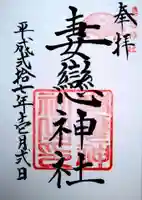 奉拝
妻戀神社
平成弐拾七年壱月弐日